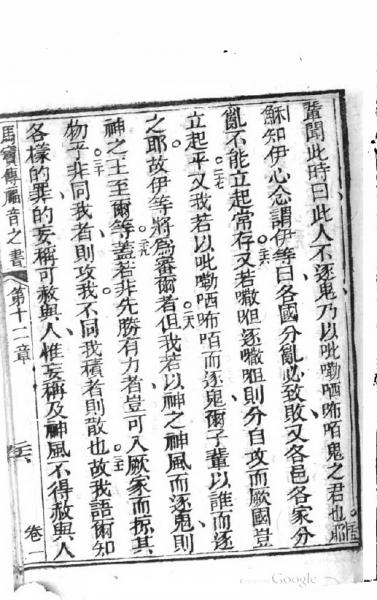 輩聞此時曰此人不逐鬼乃以吡嘞哂咘咟鬼之君也○二五耶
穌知伊心念謂伊等曰各國分亂必致敗又各邑各家分
亂不能立起常存○二六又若呾逐呾則分自攻而厥國豈
立起乎○二七又我若以吡嘞哂咘咟而逐鬼爾子輩以誰而逐
之耶故伊等將為審爾者○二八但我若以神之神風而逐鬼則
神之王至爾等○二九蓋若非先勝有力者豈可入厥家而掠其
物乎○三十非同我者則攻我不同我積者則散也○三一故我語爾知
各樣的罪的妄稱可赦與人惟妄稱及神風不得赦與人
馬竇傳福音之書 第十二章 卷一
Google